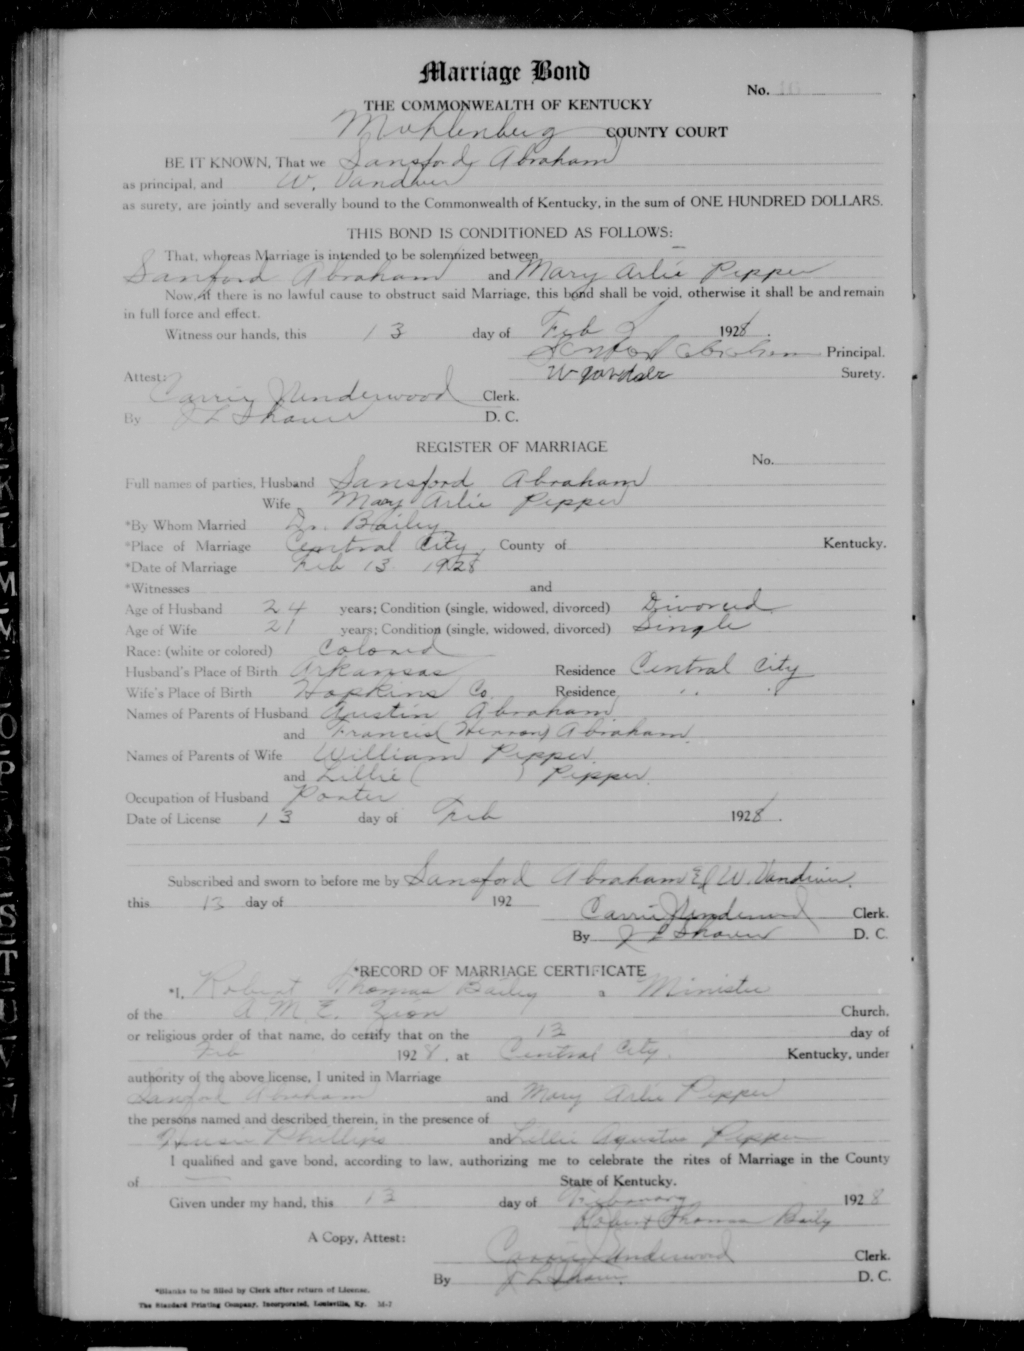 Marriage Bond
No. 16
THE COMMONWEALTH OF KENTUCKY
Muhlenberg COUNTY COURT
BE IT KNOWN, That we Sansford Abraham
as principal, and W. Vandiver
as surety, are jointly and severally bound to the Commonwealth of Kentucky, in the sum of ONE HUNDRED DOLLARS.
THIS BOND IS CONDITIONED AS FOLLOWS:
That, whereas Marriage is intended to be solemnized between
Sanford Abraham and Mary Arlie Pepper
Now, if there is no lawful cause to obstruct said Marriage, this bond shall be void, otherwise it shall be and remain
in full force and effect.
Witness our hands, this 13 day of Feb 1928.
Abraham Principal.
Attest: W Surety.
Carrie J Underwood Clerk.
By J L Shaver D. C.
REGISTER OF MARRIAGE
No.
Full names of parties, Husband Sansford Abraham
Wife Mary Arlie Pepper
*By Whom Married Dr. Baily
*Place of Marriage Central City, County of Kentucky.
*Date of Marriage Feb 13 1928
*Witnesses and
Age of Husband 24 years; Condition (single, widowed, divorced) Divorced
Age of Wife 21 years; Condition (single, widowed, divorced) Single
Race: (white or colored) Colored
Husband's Place of Birth Arkansas Residence Central City
Wife's Place of Birth Hopkins Co. Residence " "
Names of Parents of Husband Austin Abraham
and Francis ( ) Abraham.
Names of Parents of Wife William Pepper
and Lillie ( ) Pepper.
Occupation of Husband Porter
Date of License 13 day of Feb 1928.
Subscribed and sworn to before me by Sansford Abraham & W. Vandiver.
this 13 day of 192
Carrie J Underwood Clerk.
By J L Shaver D. C.
*RECORD OF MARRIAGE CERTIFICATE
*I, Robert Thomas Baily a Minister
of the A. M. E. Zion Church,
or religious order of that name, do certify that on the 13 day of
Feb 1928, at Central City. Kentucky, under
authority of the above license, I united in Marriage
Sanford Abraham and Mary Arlie Pepper
the persons named and described therein, in the presence of
Phillips and Lillie Agustus Pepper
I qualified and gave bond, according to law, authorizing me to celebrate the rites of Marriage in the County
of State of Kentucky.
Given under my hand, this 13 day of February 1928
Robert Thomas Baily
A Copy, Attest:
Carrie J Underwood Clerk.
By J L Shaver. D. C.
*Blanks to be filled by Clerk after return of License.
The Standard Printing Company, Incorporated, Louisville, Ky.